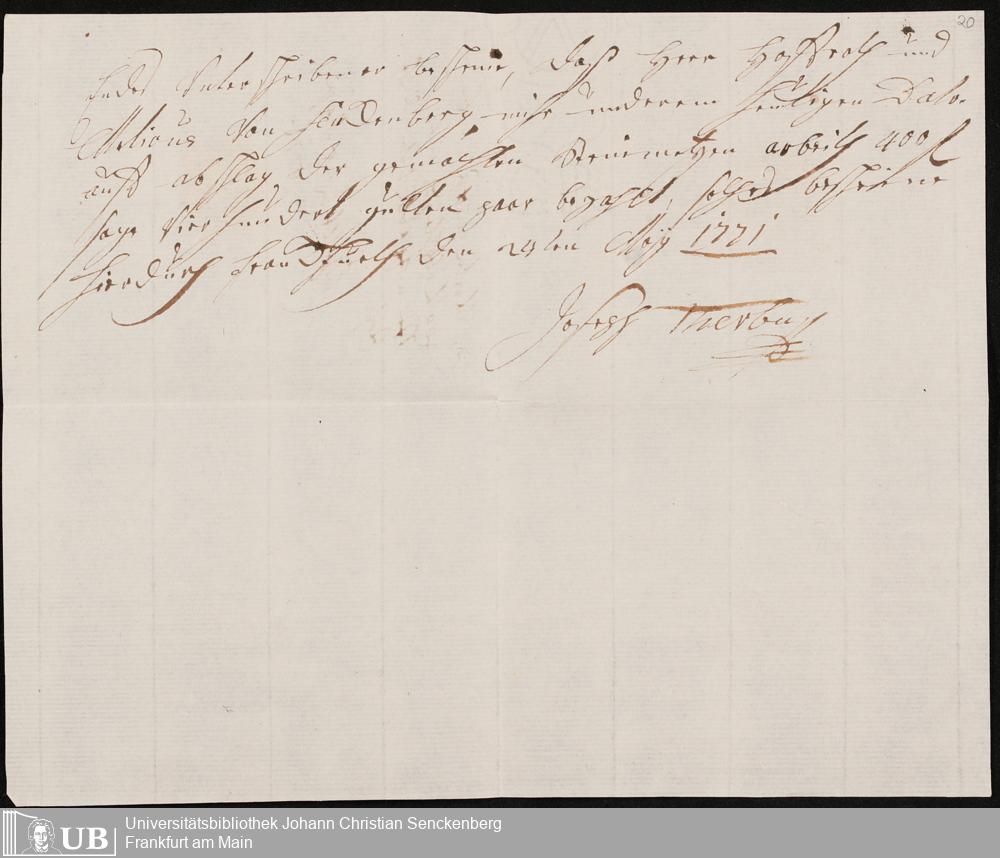 20
Endes Unterschribener bescheine, daß Herr Hoffrath und
Von Senckenberg mir under dem heutigen Dato.
auff abschlag der gemachten Steinmetzen arbeith 400 f
sage Vier hundert gulten paar bezahlt, solches bescheine
hierdurch Franckfurth den 24ten May 1771
Joseph Therbu
Universitätsbibliothek Johann Christian Senckenberg
Frankfurt am Main
UB